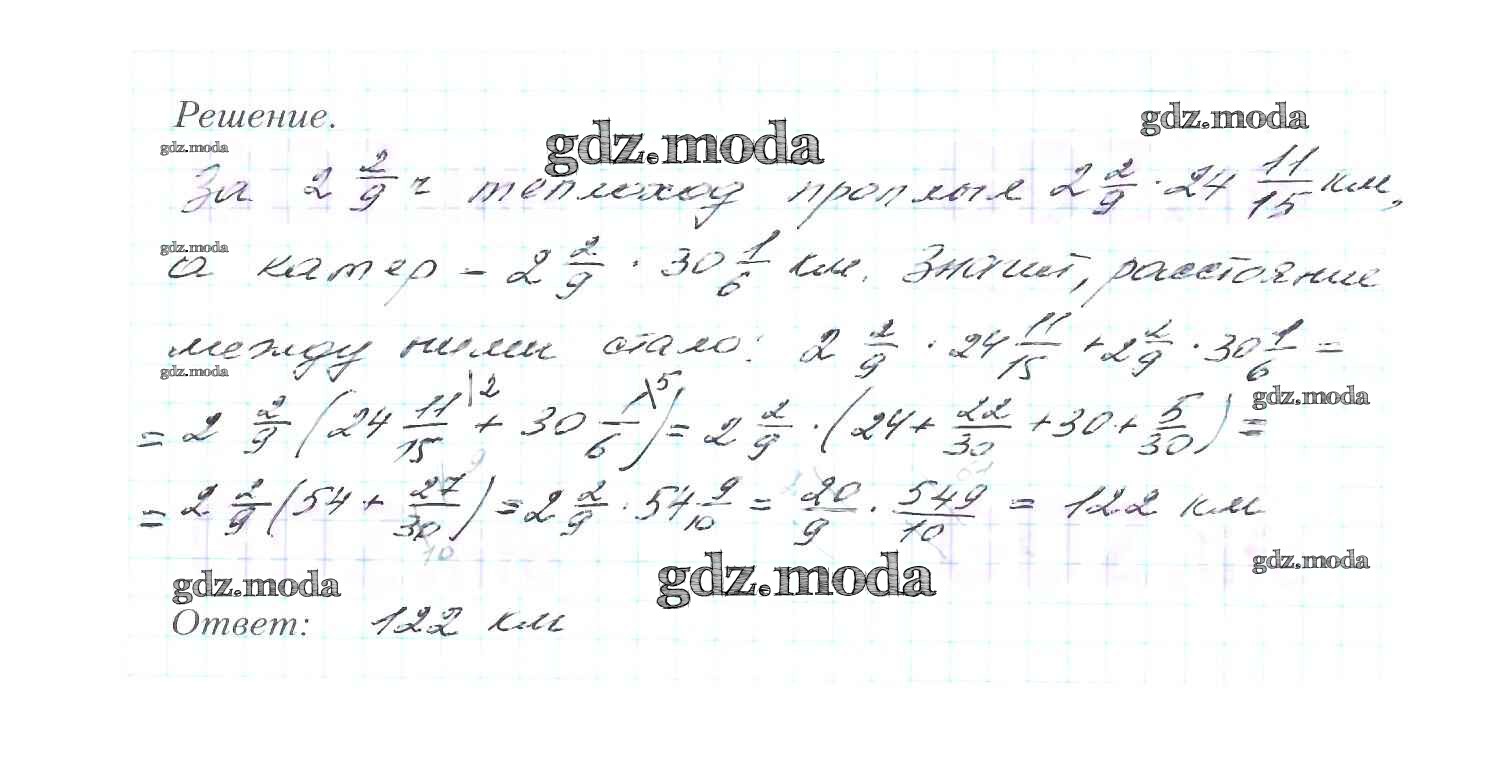 Решение.
gdz.moda
gdz.moda
gdz.moda
За 2 2/9 ч теплоход проплыл 2 2/9 · 24 11/15 км,
gdz.moda
а катер – 2 2/9 · 30 1/6 км. Значит, расстояние
между ними стало: 2 2/9 · 24 11/15 + 2 2/9 · 30 1/6 =
gdz.moda
gdz.moda
= 2 2/9 (24 11/15 |2 + 30 1/6 \5) = 2 2/9 · (24 + 22/30 + 30 + 5/30) =
= 2 2/9 (54 + 27/30) = 2 2/9 · 54 9/10 = 20/9 · 549/10 = 122 км
gdz.moda
gdz.moda
gdz.moda
Ответ: 122 км